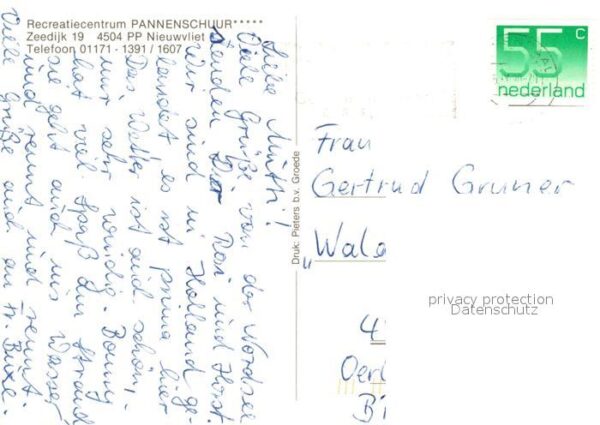 Recreatiecentrum PANNENSCHUUR*****
Zeedijk 19 4504 PP Nieuwvliet
Telefoon 01171 - 1391 / 1607
Liebe Mutti!
Viele Grüße von der Nordsee
senden Dir Rosi und Horst.
Wir sind in Holland ge-
landet es ist prima hier
Das Wetter ist auch schön,
nur sehr windig. Bonny
hat viel Spaß am Strand
sie geht auch ins Wasser
und rennt und rennt.
Viele Grüße auch an H. Buxe.
Druk: Pieters b.v. Groede
55 c
nederland
Frau
Gertrud Gruner
"Wald
4
Oerl
Bi
privacy protection
Datenschutz